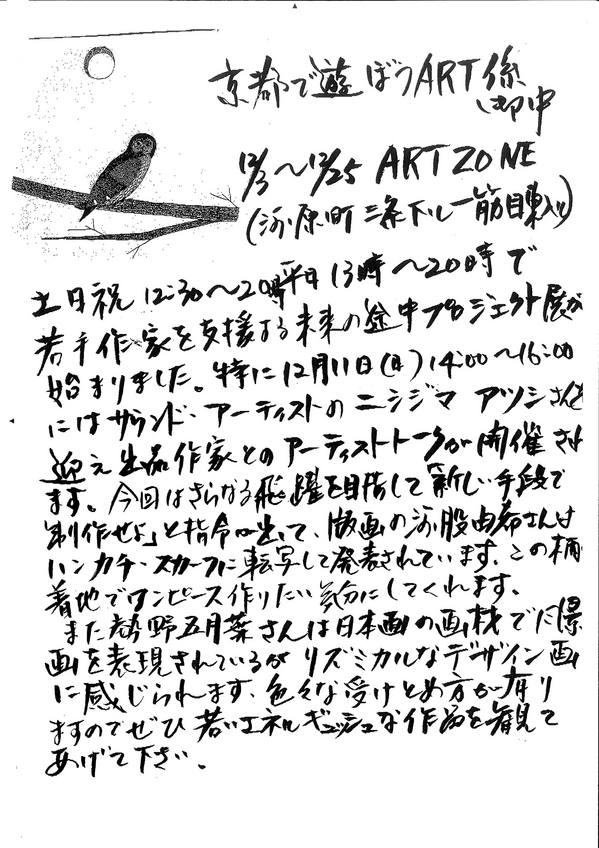 京都で遊ぼうART係
御中
12/3〜12/25 ARTZONE
(河原町三条下ル一筋目東入ル)
土日祝12:30〜20時平日13時〜20時で
若手作家を支援する未来の途中プロジェクト展が
始まりました。特に12月11日(日)14:00〜16:00
にはサウンド・アーティストのニシジマ アツシさんを
迎え出品作家とのアーティストトークが開催され
ます。今回はさらなる飛躍を目指して「新しい手段で
制作せよ」と指令が出て、版画の河股由希さんは
ハンカチ・スカーフに転写して発表されています。この柄
着地でワンピース作りたい気分にしてくれます。
また勢野五月葉さんは日本画の画材で風景
画を表現されているがリズミカルなデザイン画
に感じられます、色々な受けとめ方が有り
ますのでぜひ若いエネルギッシュな作品を観て
あげて下さい。